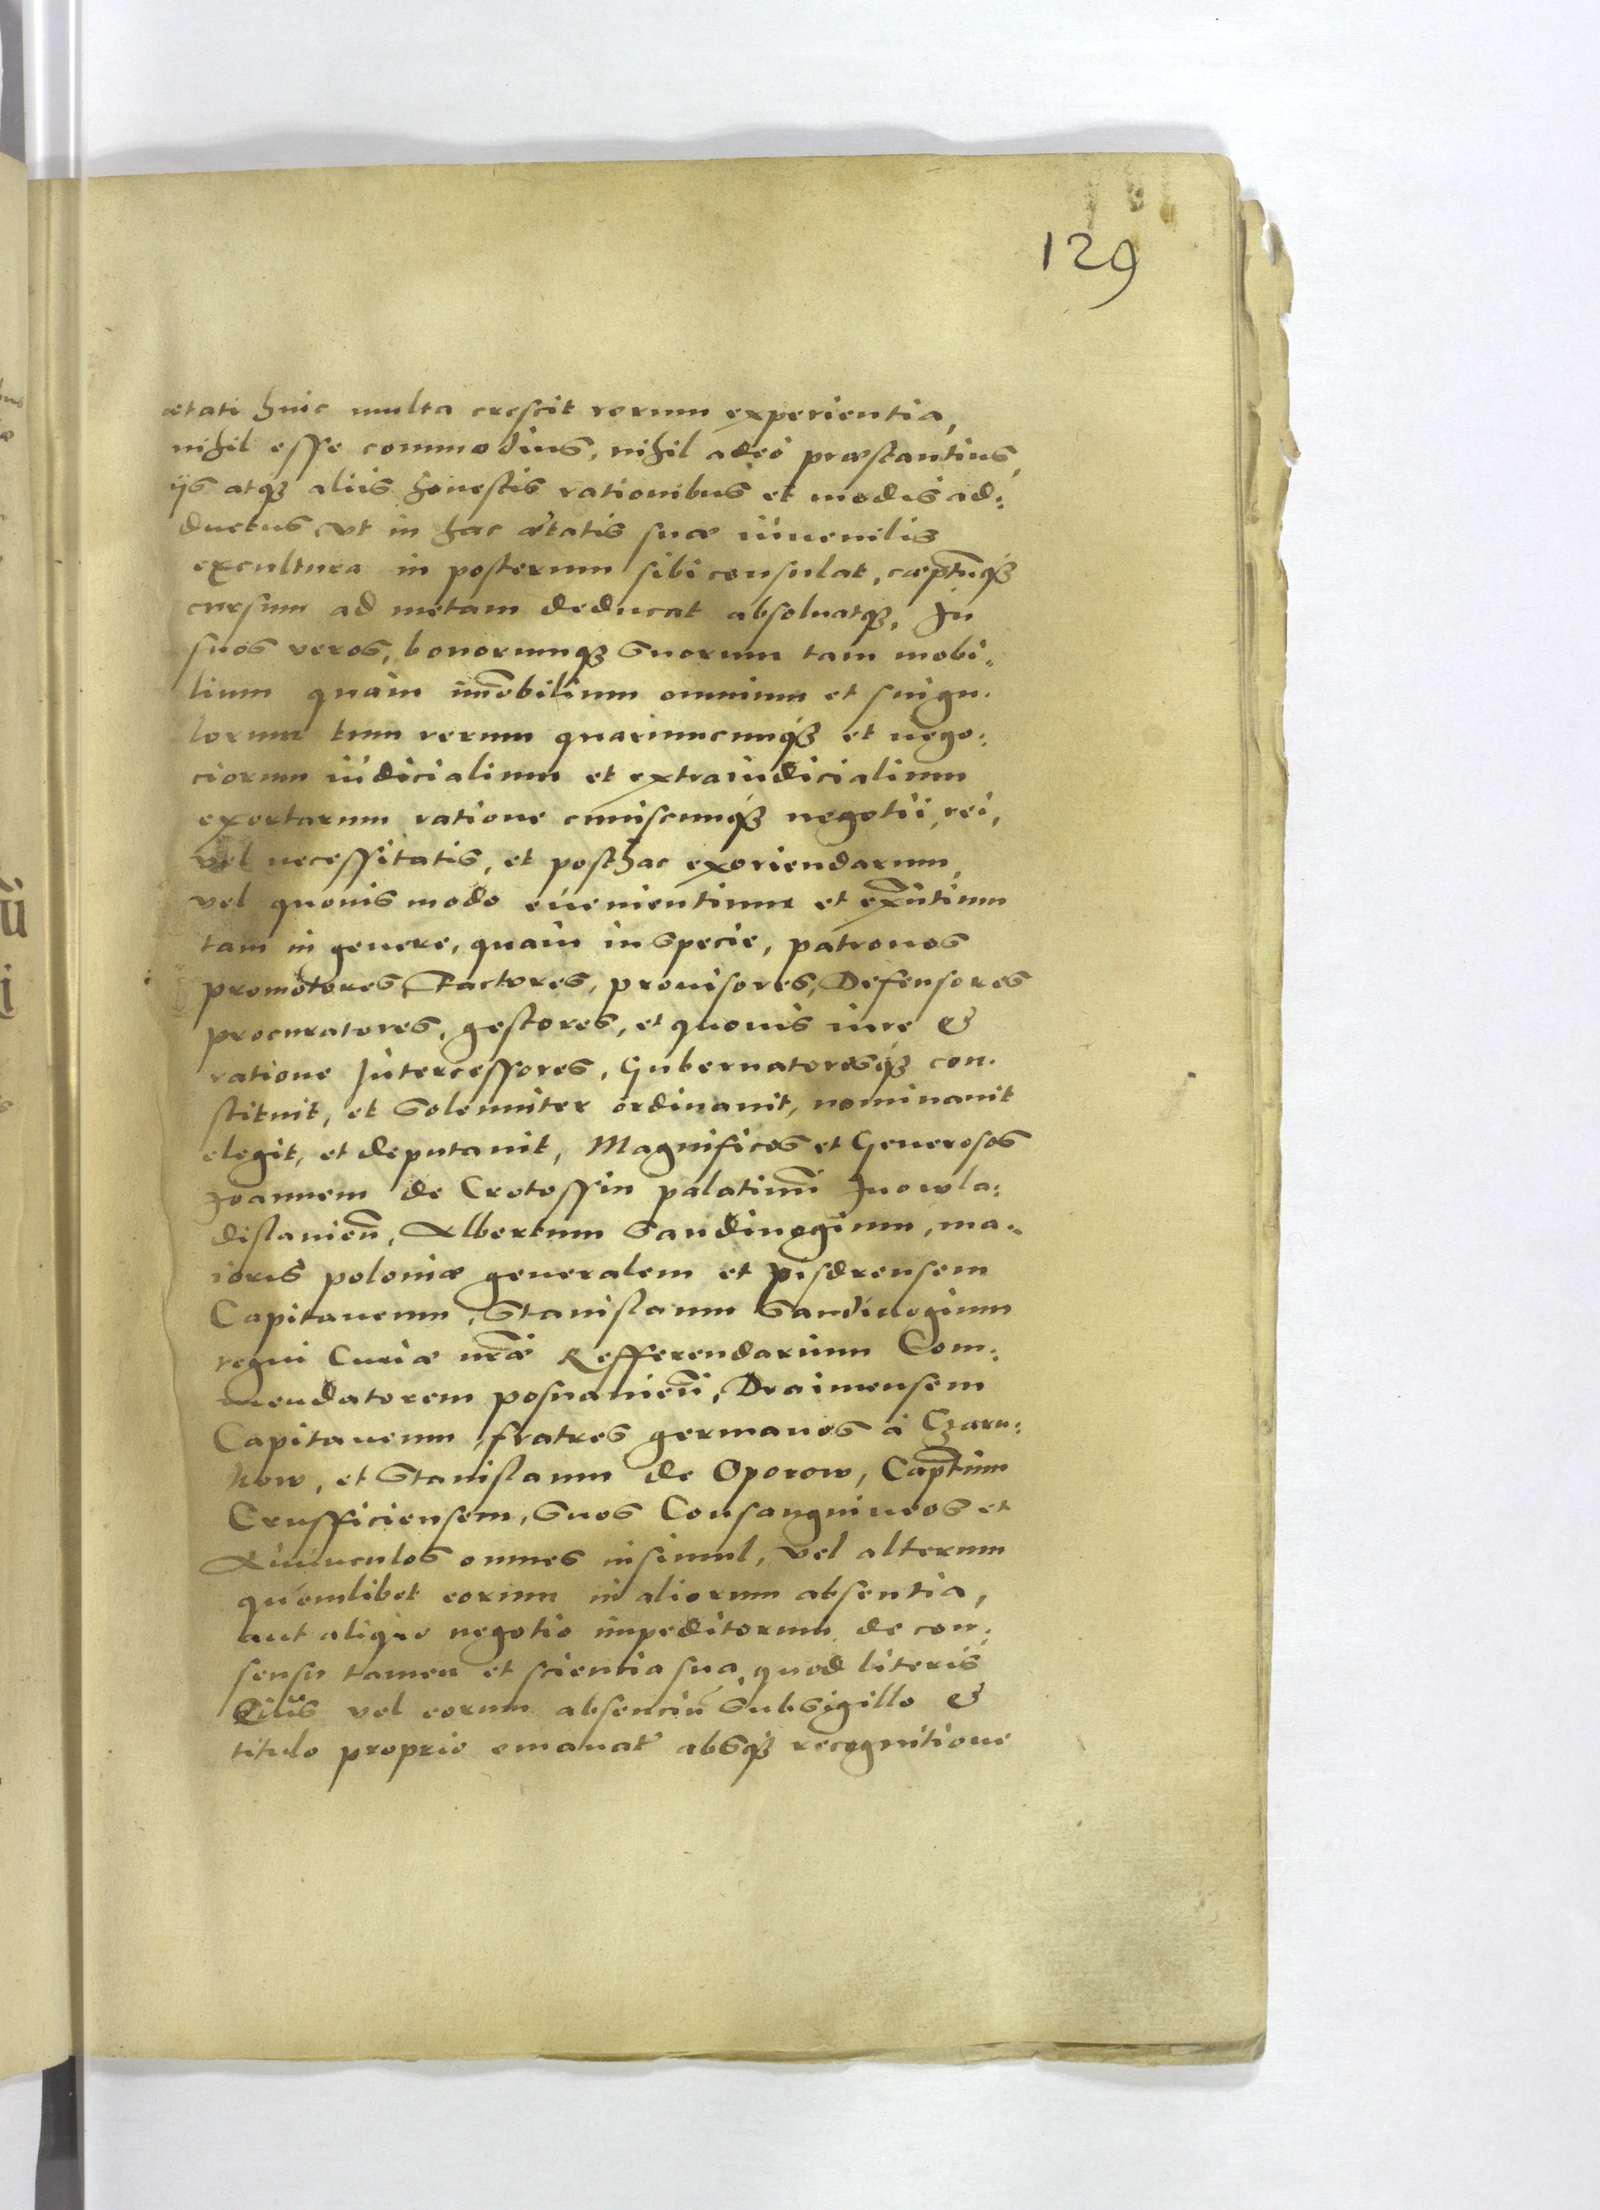 129
ætati huic multa crescit rerum experientia,
nihil esse commodius, nihil adeo præstantius,
ijs atqꝫ aliis honestis rationibus et modis ad:
ductus vt in hac ætatis suæ iuuenilis
excultura in posterum sibi consulat, cæptūqꝫ
cursum ad metam deducat absoluatqꝫ, In
suos veros, bonorumqꝫ suorum tam mobi:
lium quam im̄obilium omnium et singu:
lorum tum rerum quarumcumqꝫ et nego:
ciorum iudicialium et extraiudicialium
exortarum ratione cuiuscumqꝫ negotii, rei,
vel necessitatis, et posthac exoriendarum,
vel quouis modo euenientium et exn̄tium
tam in genere, quam in specie, patronos
promotores, Factores, prouisores, Defensores
procuratores, gestores, et quouis iure &
ratione Intercessores, Gubernatoresqꝫ con:
stituit, et solenniter ordinauit, nominauit
elegit, et deputauit, Magnificos et Generosos
Joannem de Crotossin palatinū Juowla:
dislauien̄, Albertum Sandiuogium, ma:
ioris poloniæ generalem et pisdrensem
Capitaneum, Stanislaum Sandiuogium
regni Curiæ nr̄æ Refferendarium Com:
mendatorem posnanien̄, Draimensem
Capitaneum, fratres germanos à Czarn:
kow, et Stanislaum de Oporow, Capt̄num
Crusficiensem, suos Consanguineos et
Auunculos omnes insimul, vel alterum
quemlibet eorum in aliorum absentia,
aut aliquo negotio impeditorum, de con:
sensu tamen et sciencia sua, quod literis
vel eorum absenciū sub sigillo &
titulo proprio emanat' absqꝫ recognitione